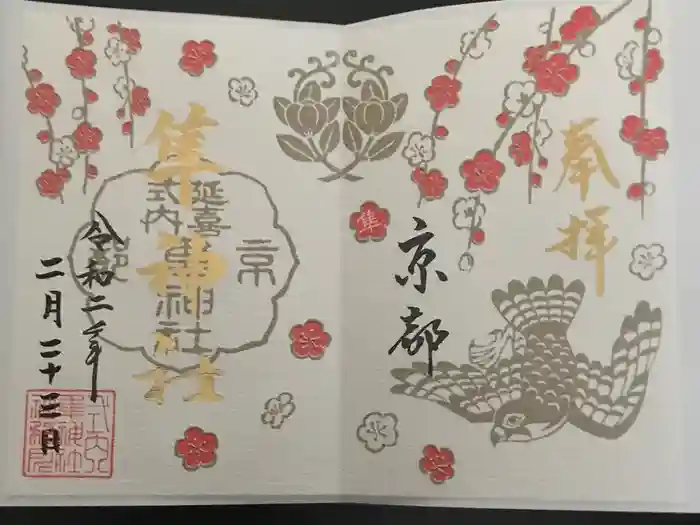 奉拝
京都
隼
隼神社
京都
延喜
式内
隼神社
令和二年
二月二十三日